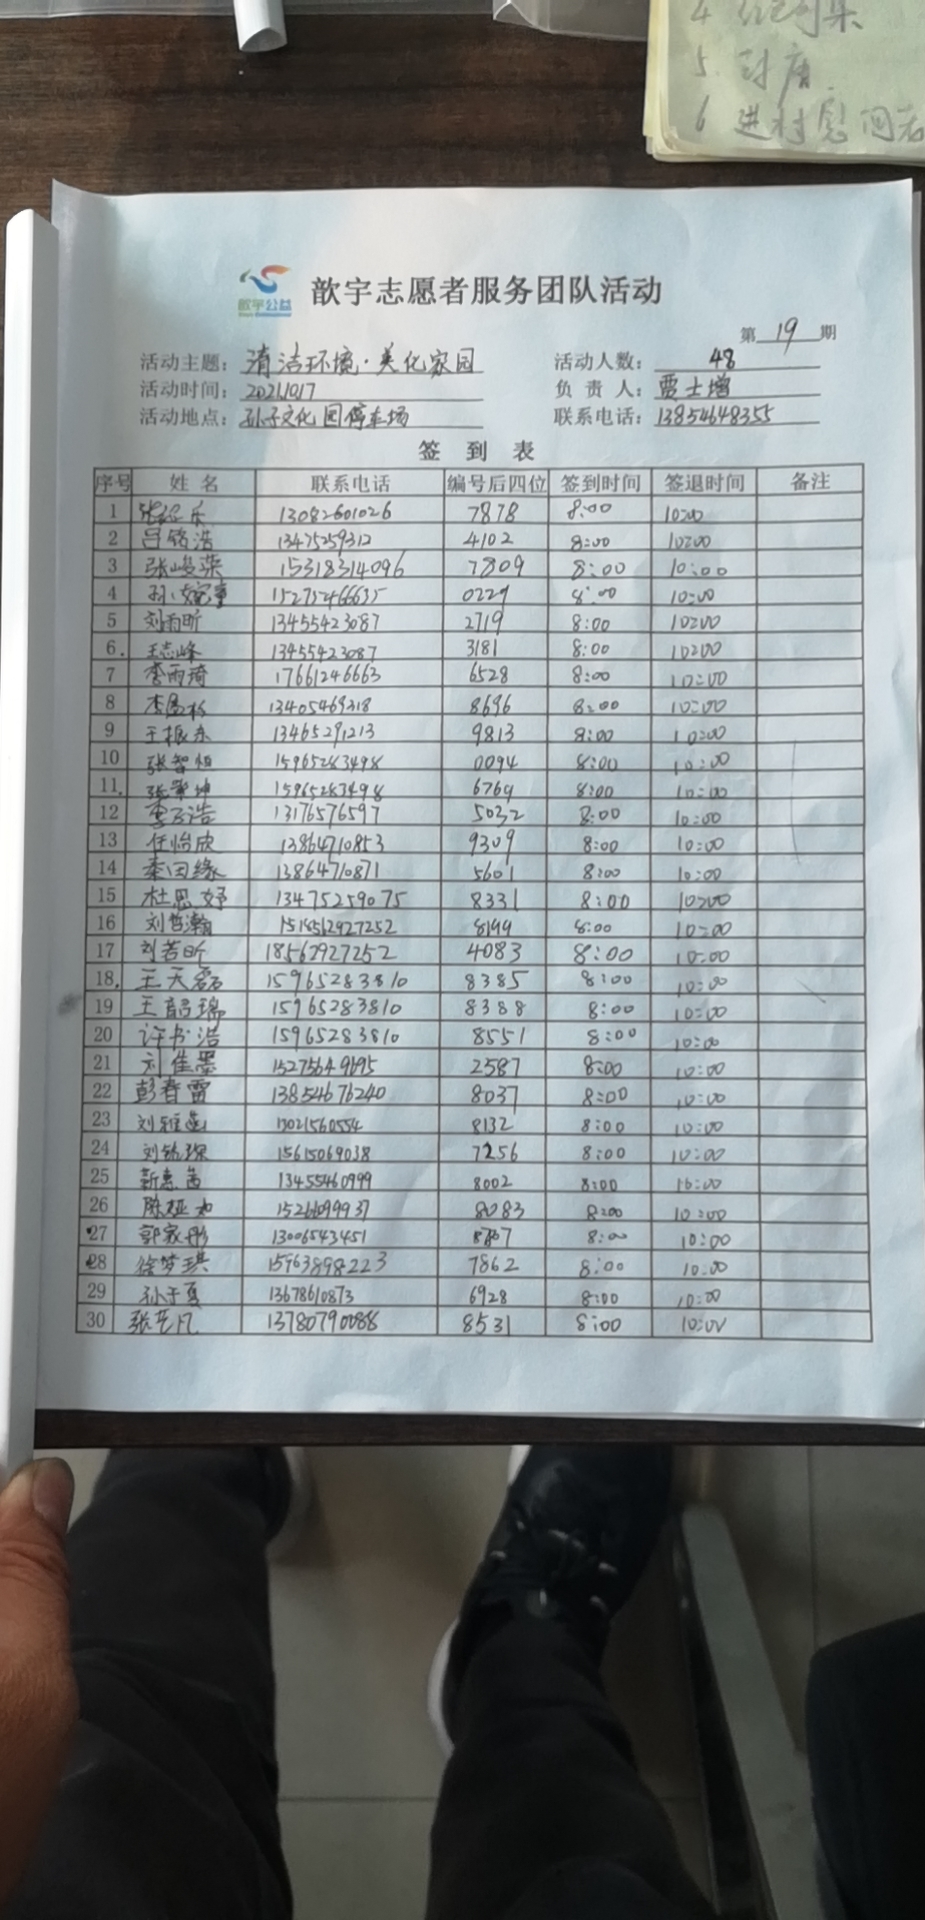 5. 封唐
6 进村慰问
歆宇公益
歆宇志愿者服务团队活动
第 19 期
活动主题: 清洁环境·美化家园 活动人数: 48
活动时间: 2021.10.17 负责人: 贾士增
活动地点: 孙子文化园停车场 联系电话: 13854648355
签到表
序号 姓名 联系电话 编号后四位 签到时间 签退时间 备注
1 13082601026 7878 8:00 10:00
2 吕铭浩 13475259312 4102 8:00 10:00
3 张峻荣 15318314096 7809 8:00 10:00
4 15275466635 0229 8:00 10:00
5 刘雨昕 13455423087 2719 8:00 10:00
6. 王志峰 13455423087 3181 8:00 10:00
7 李雨琦 17661246663 6528 8:00 10:00
8 13405469318 8696 8:00 10:00
9 王振东 13465291213 9813 8:00 10:00
10 张智恒 15965283498 0094 8:00 10:00
11. 张肇坤 15965283498 6769 8:00 10:00
12 李子浩 13176576597 5032 8:00 10:00
13 任怡欣 13864710853 9309 8:00 10:00
14 秦田缘 13864710871 5601 8:00 10:00
15 杜思妤 13475259075 8331 8:00 10:00
16 刘哲瀚 8199 8:00 10:00
17 刘若昕 18562927252 4083 8:00 10:00
18. 王天磊 15965283810 8385 8:00 10:00
19 王韶瑞 15965283810 8388 8:00 10:00
20 许书浩 15965283810 8551 8:00 10:00
21 刘佳墨 15275649695 2587 8:00 10:00
22 彭春雷 13854676240 8037 8:00 10:00
23 刘雅菡 13021560554 8132 8:00 10:00
24 刘铭琛 15615069038 7256 8:00 10:00
25 靳惠茜 13455460999 8002 8:00 10:00
26 陈娅如 8083 8:00 10:00
27 郭家彤 13006543451 8:00 10:00
28 徐梦琪 15963898223 7862 8:00 10:00
29 孙于夏 13678610873 6928 8:00 10:00
30 张艺凡 13780790088 8531 8:00 10:00